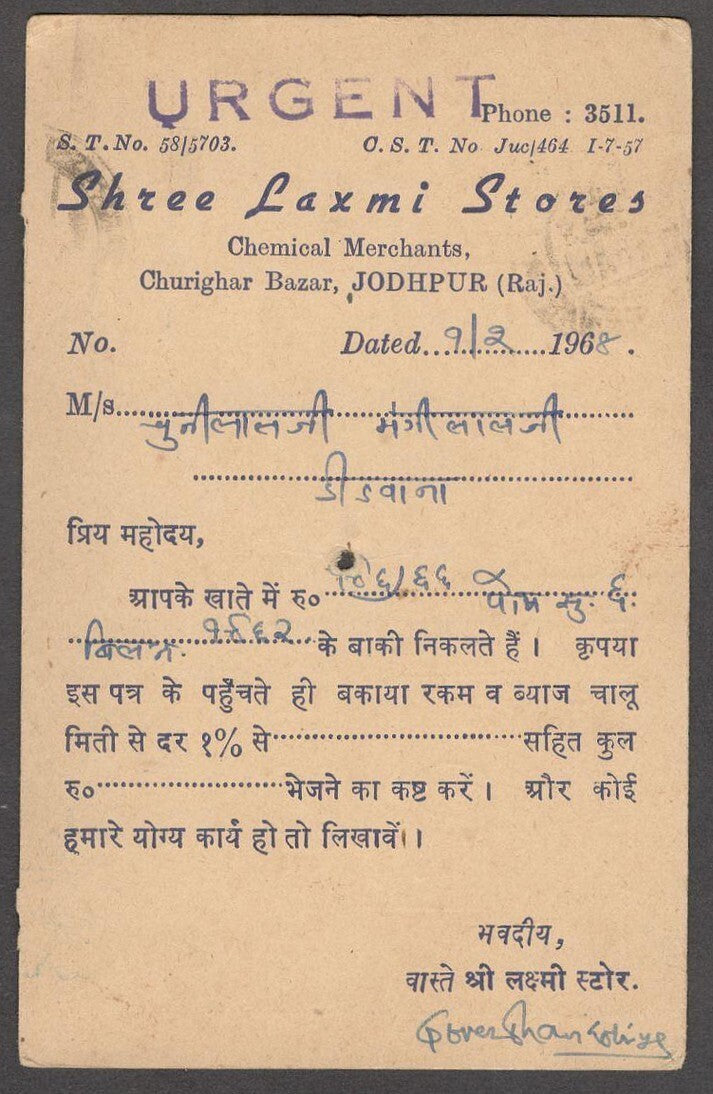 URGENT
Phone : 3511.
S. T. No. 58/5703. C. S. T. No Juc/464 1-7-57
Shree Laxmi Stores
Chemical Merchants,
Churighar Bazar, JODHPUR (Raj.)
No. Dated...१/२...1968.
M/s. चुनीलालजी मंगीलालजी
डीडवाना
प्रिय महोदय,
आपके खाते में रु० सु. ६.
के बाकी निकलते हैं। कृपया
इस पत्र के पहुँचते ही बकाया रकम व ब्याज चालू
मिती से दर १% से सहित कुल
रु० भेजने का कष्ट करें। और कोई
हमारे योग्य कार्य हो तो लिखावें।
भवदीय,
वास्ते श्री लक्ष्मी स्टोर.